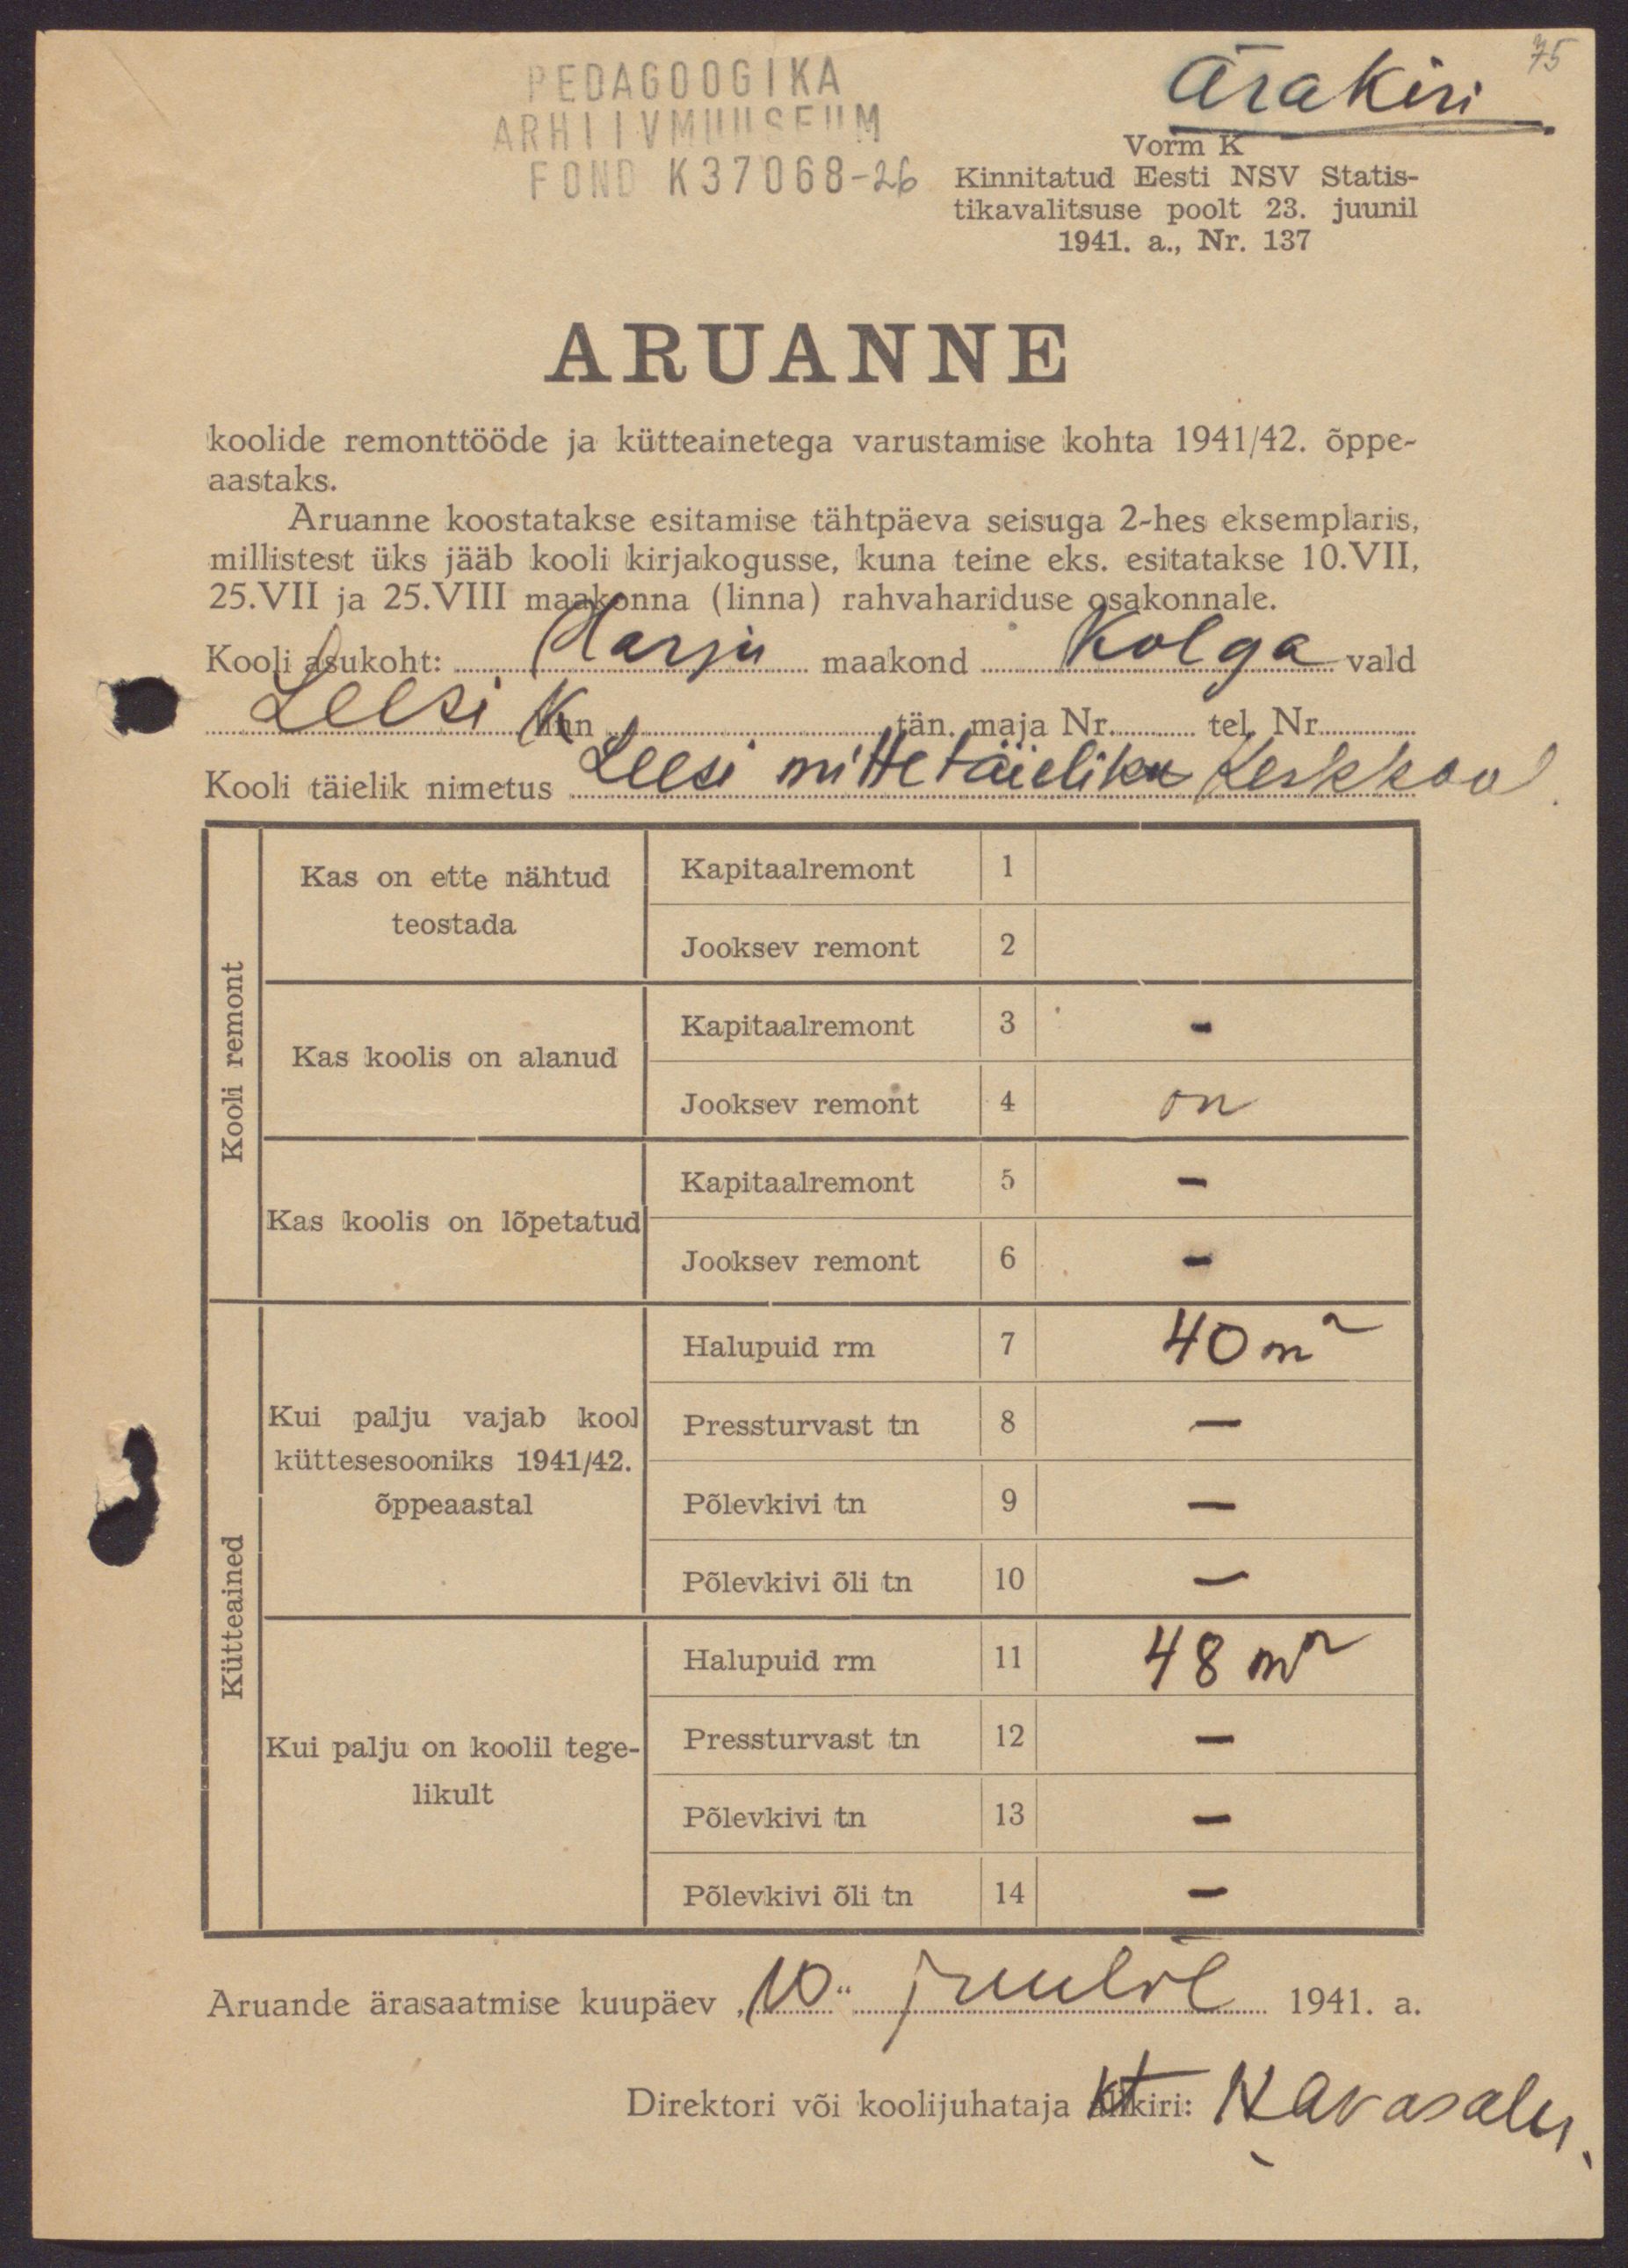 75
Ärakiri
PEDAGOOGIKA
ARHIIVMUUSEUM
FOND K37068-26
Vorm K
Kinnitatud Eesti NSV Statis-
tikavalitsuse poolt 23. juunil
1941. a., Nr. 137
ARUANNE
koolide remonttööde ja kütteainetega varustamise kohta 1941/42. õppe-
aastaks.
Aruanne koostatakse esitamise tähtpäeva seisuga 2-hes eksemplaris,
millistest üks jääb kooli kirjakogusse, kuna teine eks. esitatakse 10.VII,
25.VII ja 25.VIII maakonna (linna) rahvahariduse osakonnale.
Kooli asukoht: Harju maakond Kolga vald
Leesi k linn tän. maja Nr. tel. Nr.
Kooli täielik nimetus Leesi mittetäielik Keskkool
Kooli remont
Kas on ette nähtud
teostada
Kapitaalremont 1
Jooksev remont 2
Kas koolis on alanud
Kapitaalremont 3 -
Jooksev remont 4 on
Kas koolis on lõpetatud
Kapitaalremont 5 -
Jooksev remont 6 -
Kütteained
Kui palju vajab kool
küttesesooniks 1941/42.
õppeaastal
Halupuid rm 7 40 m²
Pressturvast tn 8 —
Põlevkivi tn 9 —
Põlevkivi õli tn 10 —
Kui palju on koolil tege-
likult
Halupuid rm 11 48 m²
Pressturvast tn 12 —
Põlevkivi tn 13 —
Põlevkivi õli tn 14 —
Aruande ärasaatmise kuupäev „10“ juulil 1941. a.
Direktori või koolijuhataja kt allkiri: